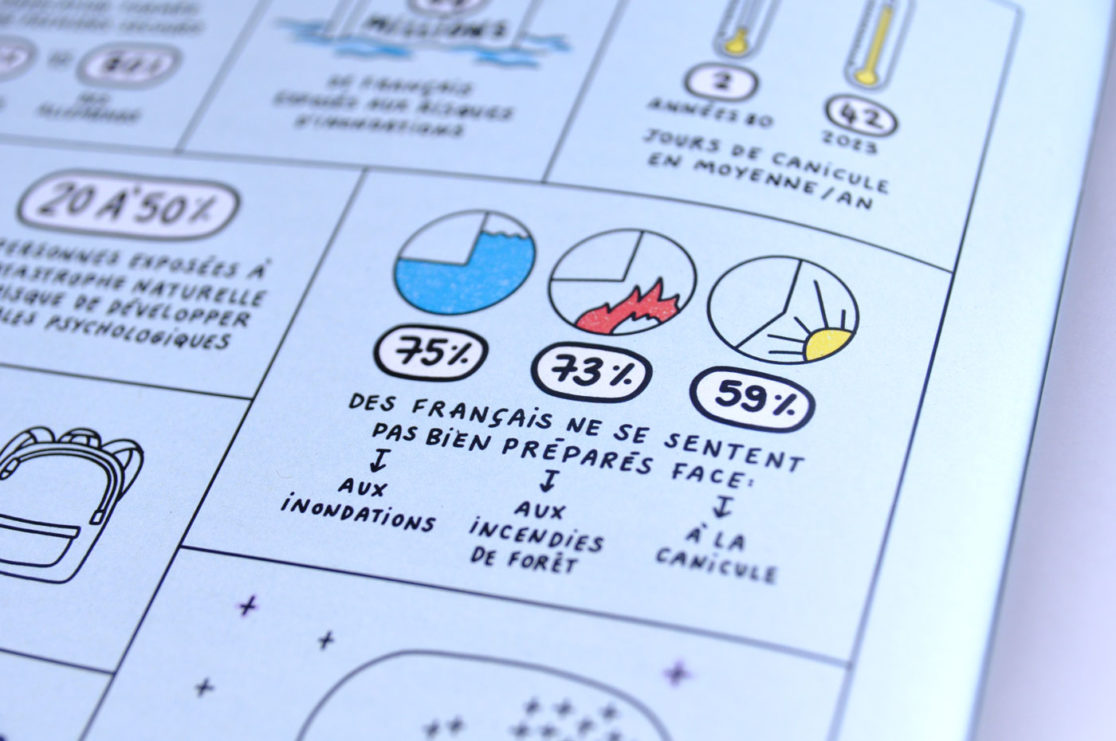 MILLIONS
DE FRANÇAIS
EXPOSÉS AUX RISQUES
D'INONDATIONS
2
ANNÉES 80
42
2023
JOURS DE CANICULE
EN MOYENNE/AN
20 À 50%
PERSONNES EXPOSÉES À
CATASTROPHE NATURELLE
RISQUE DE DÉVELOPPER
PSYCHOLOGIQUES
75%
73%
59%
DES FRANÇAIS NE SE SENTENT
PAS BIEN PRÉPARÉS FACE:
AUX
INONDATIONS
AUX
INCENDIES
DE FORÊT
À LA
CANICULE